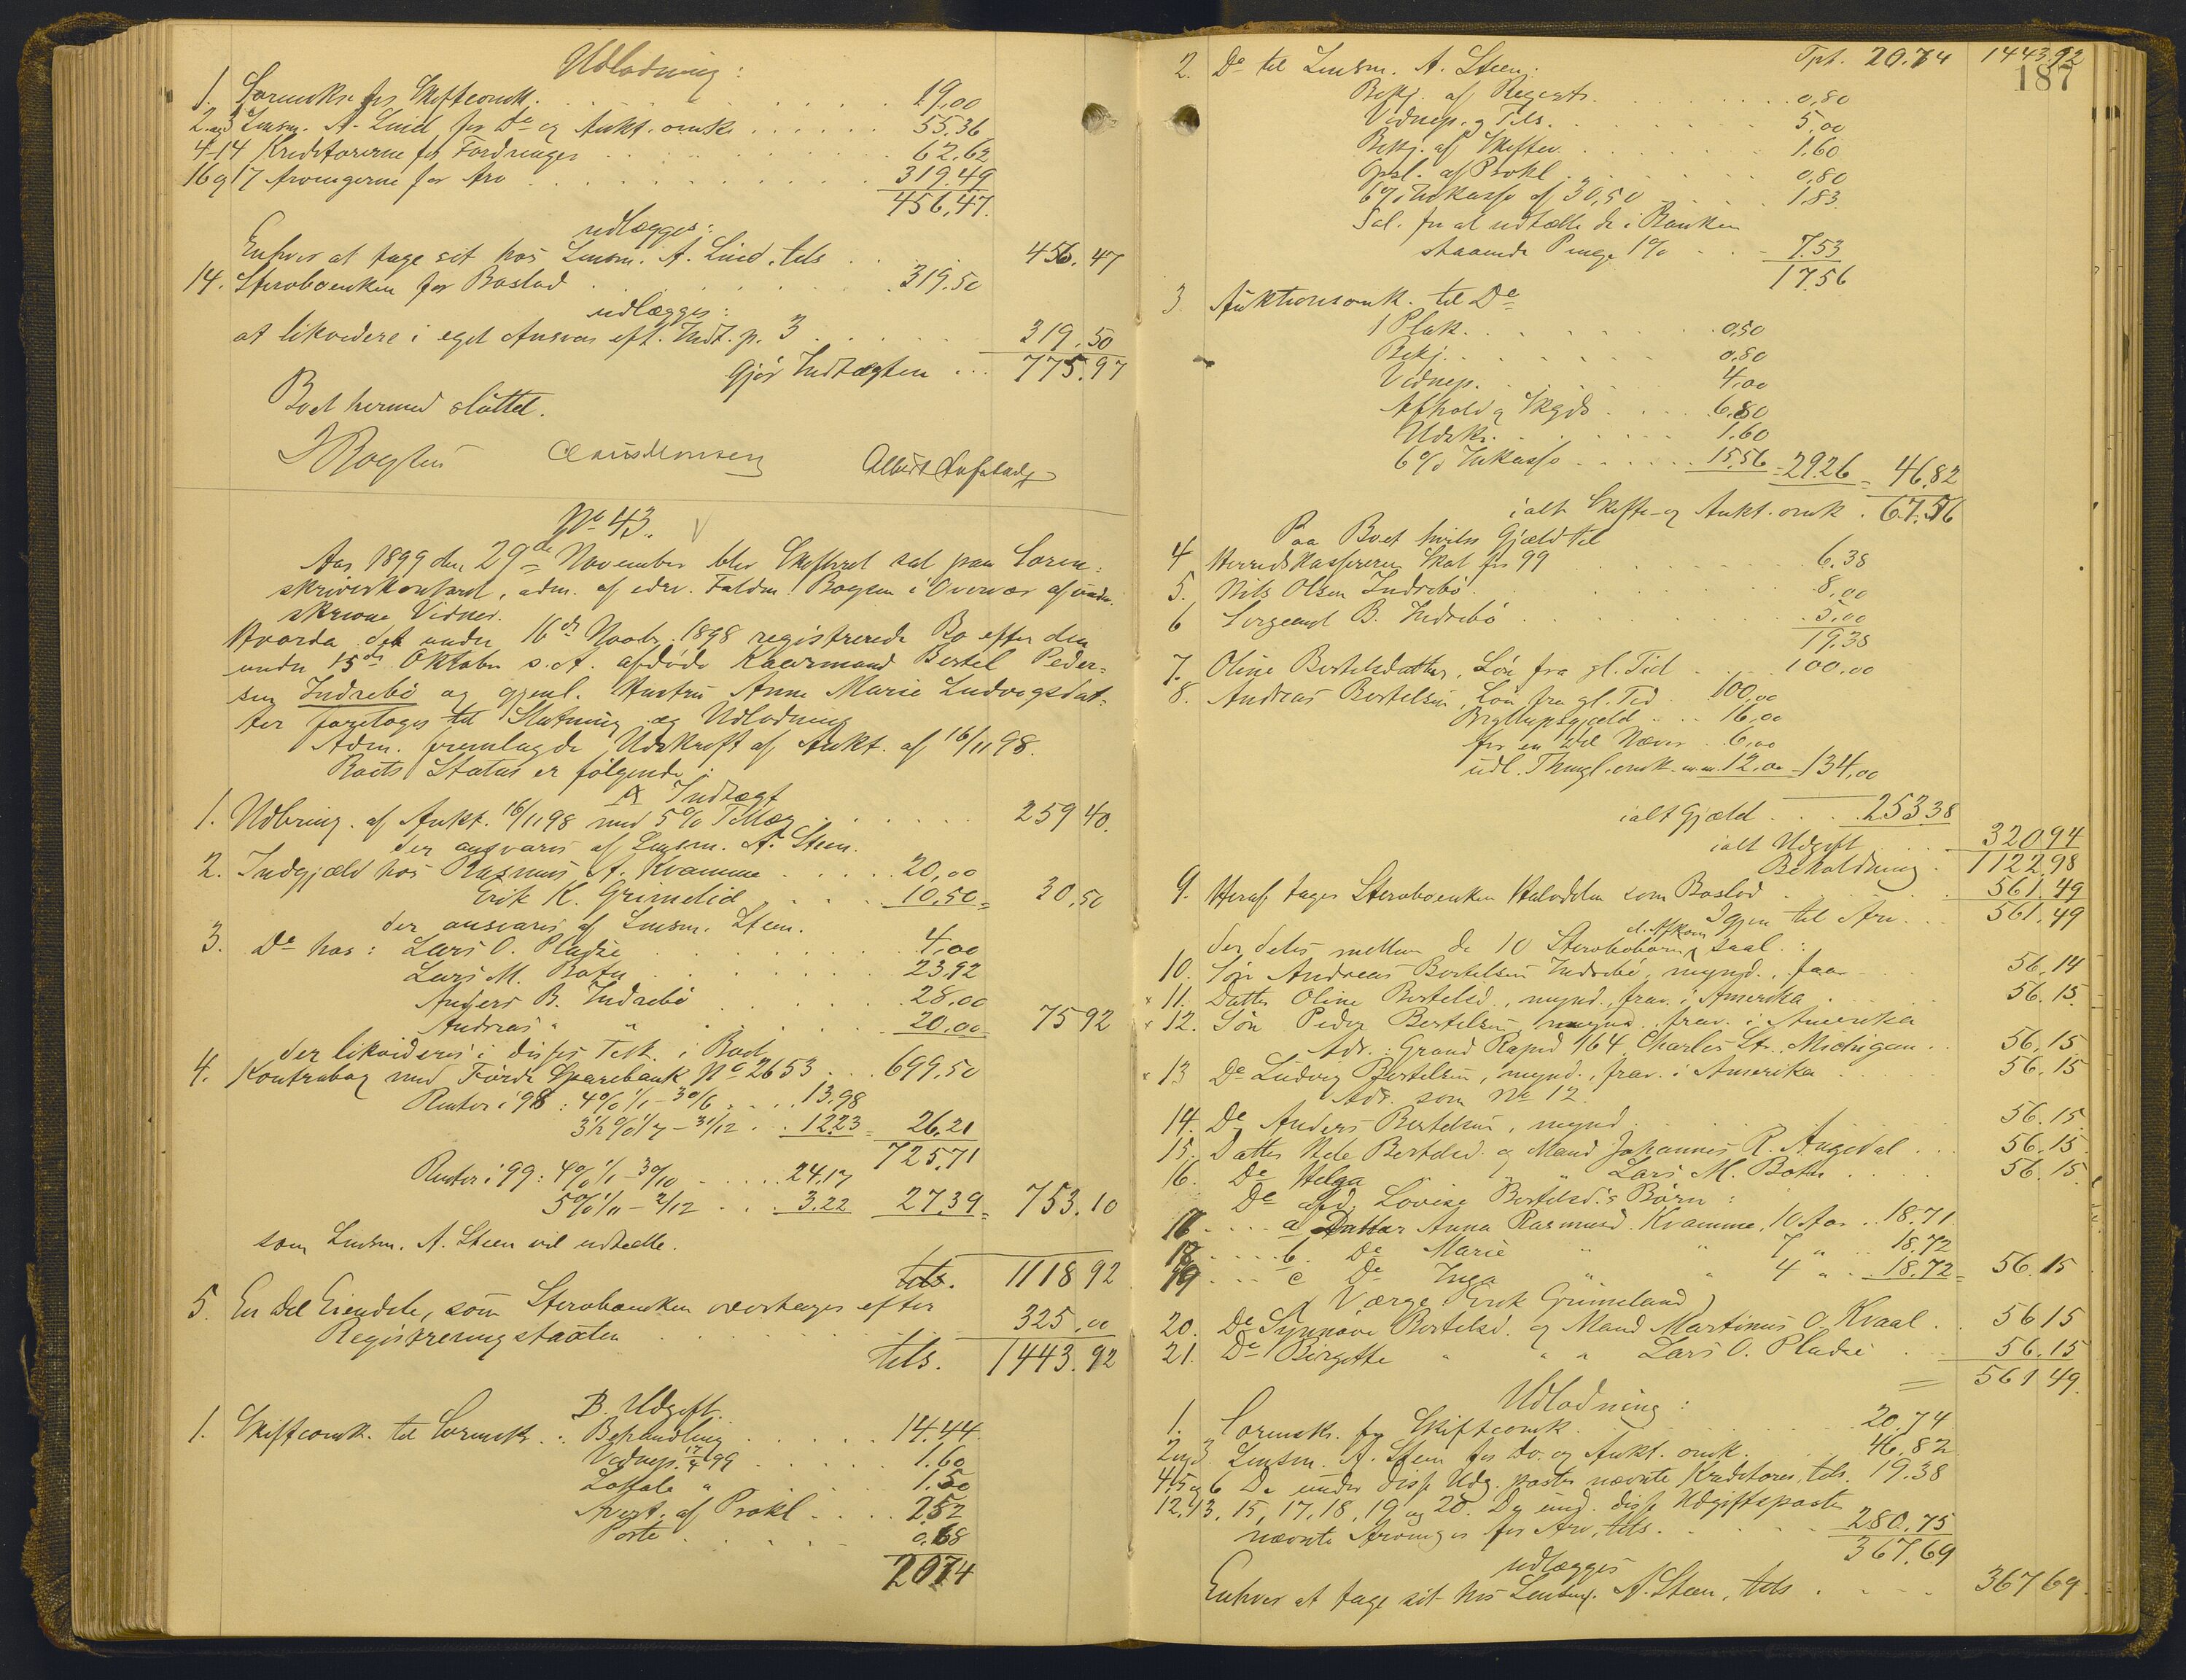 Udlodning:
1. Sorenskr. for Skifteomk. 19,00
2 og 3 Lensm. A. Lind for Do og Aukt.omk. 55.36
4-14 Kreditorerne for Fordringer 62.62
16 og 17 Arvingerne for Arv 319.49
456,47.
udlægges:
Enhver at tage sit hos Lensm. A. Lind, tils 456.47
14. Stervboenken for Boslod 319.50
udlægges:
at likvidere i eget Ansvar eft. Indt. p. 3 319.50
Gjør Indtægten 775.97
Boet hermed sluttet.
Christensen Albert
No 43.
Aar 1899 den 29de November blev Skifteret sat paa Soren-
skriverkontoret, adm. af edsv. Fuldm. Bogsen i Overvær af under-
skrevne Vidner.
Hvorda det under 16de Novbr. 1898 registrerede Bo efter den
under 15de Oktober s. A. afdøde Kaarmand Bertel Peder-
sen Indrebø og gjenl. Hustru Anne Marie Ludvigsdat-
ter foretoges til Slutning og Udlodning
Adm. fremlagde Udskrift af Aukt. af 16/11 98.
Boets Status er følgende:
A Indtægt
1. Udbring. af Aukt. 16/11 98 med 5% Tillæg 259 40.
der ansvares af Lensm. A. Steen.
2. Indgjæld hos Rasmus A. Kvamme 20,00
Erik K. Grimelid 10,50 = 30,50
der ansvares af Lensm. Steen.
3. Do hos: Lars O. Pladse 4,00
Lars M. Botn 23.92
Anders B. Indrebø 28,00
Andreas " " 20,00 75 92
der likvideres i disses Tilh. i Boet
4. Kontrabog med Førde Sparebank No 2653 699,50
Renter i 98: 4% 1/1 - 30/6 13.98
3½% 1/7 - 31/12 12.23 = 26,21
725,71
Renter i 99: 4% 1/1 - 30/10 24.17
5% 1/11 - 2/12 3.22 27.39 = 753.10
som Lensm. A. Steen vil udbetale.
tils. 1118 92
5. En Del Eiendele, som Sterboenken overtager efter
Registreringstaxten 325,00
tils. 1443.92
B. Udgift.
1. Skifteomk. til Sorensk.: Behandling 14.44
Vidnep. 17/4 99 1.60
Lokale " 1.50
Avert. af Prokl 2.52
Porto 0.68
20.74
187
Tpt. 20.74 1443.92
2. Do til Lensm. A. Steen:
Bekj. af Registr. 0,80
Vidnep. og Tils. 5,00
Bekj. af Skiftev. 1.60
Opsl. af Prokl. 0,80
6% Inkasso af 30,50 1.83
Sal. for at udtælle de i Banken
staaende Penge 1% 7.53
17.56
3. Auktionsomk. til Do
1 Plak. 0,50
Bekj. 0,80
Vidnep. 4,00
Afhold og Skyds 6.80
Udskr. 1.60
6% Inkasso 15.56 = 29.26 = 46.82
ialt Skifte- og Aukt.omk. 67.56
Paa Boet hviler Gjæld til
4 Herredskassereren Skat for 99 6.38
5. Nils Olsen Indrebø 8,00
6 Sergeant B. Indrebø 5,00
19.38
7. Oline Bertelsdatter, Løn fra gl. Tid 100,00
8. Andreas Bertelsen, Løn fra gl. Tid 100,00
Bryllupsgjæld 16,00
for en Del Næver 6,00
udl. Thingl.omk. m.m. 12,00 = 134,00
ialt Gjæld 253.38
ialt Udgift 320 94
Beholdning 1122.98
9. Heraf tages Sterboenken Halvdelen som Boslod 561.49
Igjen til Arv 561.49
der deles mellem de 10 Sterbobørn d. Afkom saal.:
10. Søn Andreas Bertelsen Indrebø, mynd., faar 56.14
11. Datter Oline Bertelsd., mynd., frav. i Amerika 56.15
12. Søn Peder Bertelsen, mynd., frav. i Amerika
Adr.: Grand Rapid 164 Charles St., Michigan 56.15
13 Do Ludvig Bertelsen, mynd., frav. i Amerika 56.15
Adr. som No 12.
14. Do Anders Bertelsen, mynd. 56.15
15. Datter Bertelsd. og Mand Johannes R. Angedal 56.15
16. Do Helga " " Lars M. Botn 56.15
Do afd. Lovise Bertelsd.'s Børn:
a Datter Anna Rasmusd. Kvamme, 10 Aar 18.71
18 b. Do Marie " " 7 " 18.72
19 c Do Inga " " 4 " 18.72 = 56.15
(Værge Erik Grimeland)
20. Do Synnøve Bertelsd. og Mand Martinus O. Kvaal 56 15
21. Do Birgitte " " " Lars O. Pladse 56.15
= 561 49.
Udlodning:
1. Sorensk. for Skifteomk. 20.74
2 og 3. Lensm. A. Steen for Do. og Aukt. omk. 46.82
4, 5 og 6 De under disse Udg. poster nævnte Kreditorer, tils. 19.38
12, 13, 15, 17, 18, 19 og 20. De und. disse Udgiftsposter
nævnte Arvinger for Arv, tils. 280.75
367.69
udlægges
Enhver at tage sit hos Lensm. A. Steen, tils 367 69.